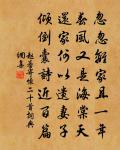 忽忽辭家且一年
春風又是海棠天
還家何以遺妻子
傾倒囊詩近百篇
趙蕃寄懷二十首詞典
網